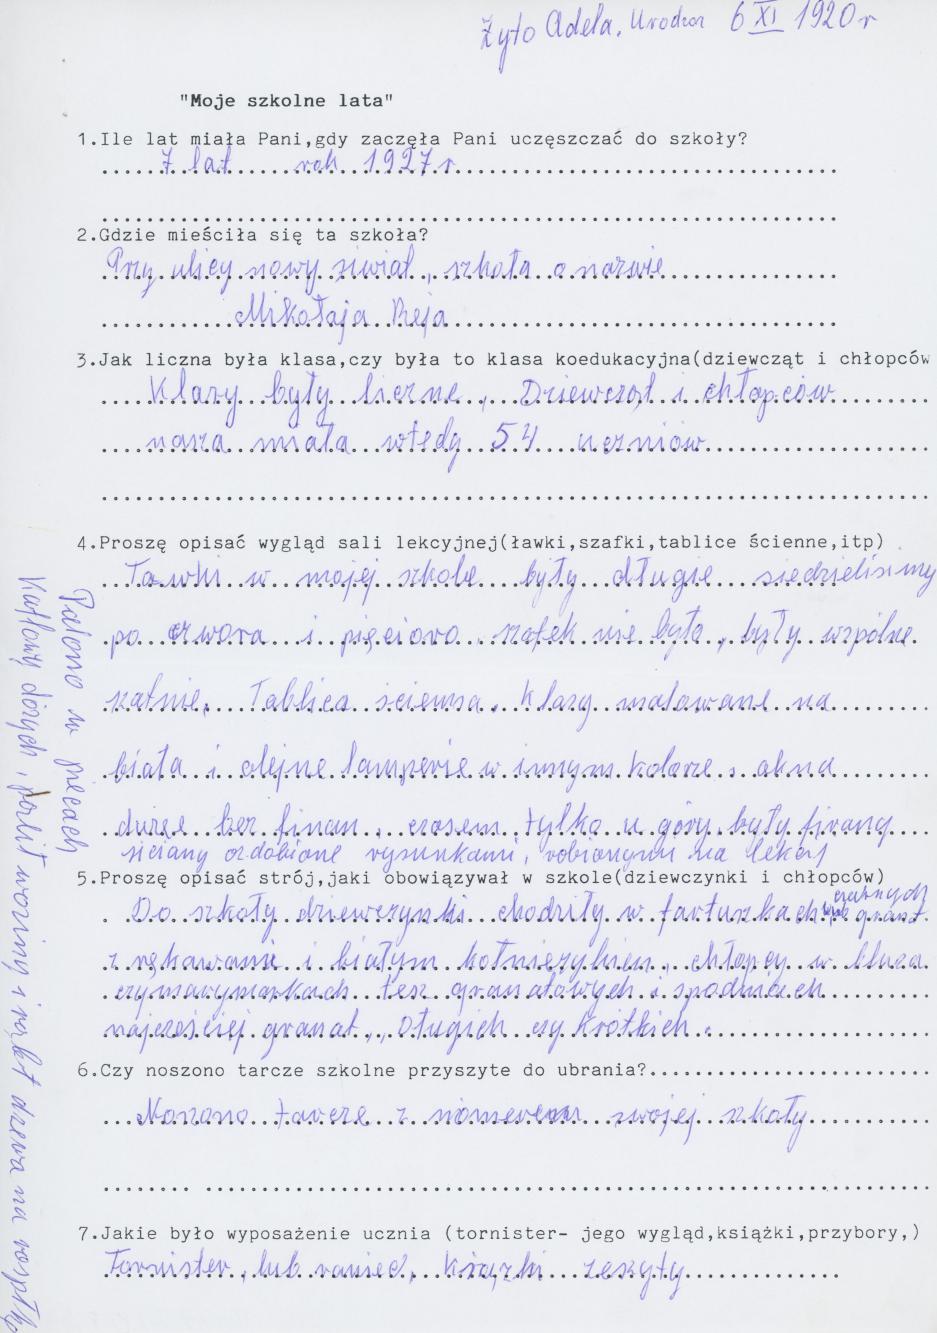 Żyło Adela, Urodzon 6 XI 1920 r
"Moje szkolne lata"
1.Ile lat miała Pani,gdy zaczęła Pani uczęszczać do szkoły?
7 lat rok 1927 r
2.Gdzie mieściła się ta szkoła?
Przy ulicy nowy siwiat, szkoła o nazwie
Mikołaja Reja
3.Jak liczna była klasa,czy była to klasa koedukacyjna(dziewcząt i chłopców
Klasy były liczne, Dziewcząt i chłopców
nasza miała wtedy 54 uczniów
4.Proszę opisać wygląd sali lekcyjnej(ławki,szafki,tablice ścienne,itp)
Ławki w mojej szkole były długie siedzieliśmy
po czwora i pięcioro, szafek nie było, były wspólne
szatnie. Tablica ścienna. Klasy malowane na
biało i olejne lamperie w innym kolorze, okna
duże bez firan, czasem tylko u góry były firany
ściany ozdobione rysunkami, robionymi na lekcj
5.Proszę opisać strój,jaki obowiązywał w szkole(dziewczynki i chłopców)
Do szkoły dziewczynki chodziły w fartuszkach czarnych
lub granat.
z rękawami i białym kołnierzykiem, chłopcy w bluza
czy marynarkach też granatowych i spodniach
najcześciej granat., Długich czy krótkich.
6.Czy noszono tarcze szkolne przyszyte do ubrania?
Noszono tarcze z numerem swojej szkoły
7.Jakie było wyposażenie ucznia (tornister- jego wygląd,książki,przybory,)
Tornister, lub raniec, książki zeszyty
Palono w piecach
Kaflowy dużych, palił woźny i rąbał drzwa na rospałkę